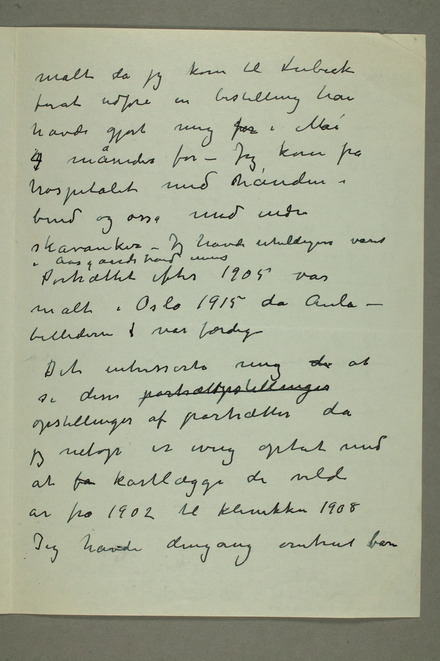 malt da jeg kom til Lübeck
forat udføre en bestilling han
havde gjort mig for i Mai
4 måneder før – Jeg kom på
hospitalet med hånden i
bind og også med andre
skavanker – Jg havde uheldigvis været
i Aasgaardstrand
Portrættet efter 1905 var
malt i Oslo 1915 da Aula –
billederne var færdig
Det interesserte mig de at
se disse portrætopstillinger
opstillinger af portrætter da
jeg netop er ivrig optat med
at kartlægge de vilde
år fra 1902 til klinikken 1908
Jeg havde dengang omtrent bare